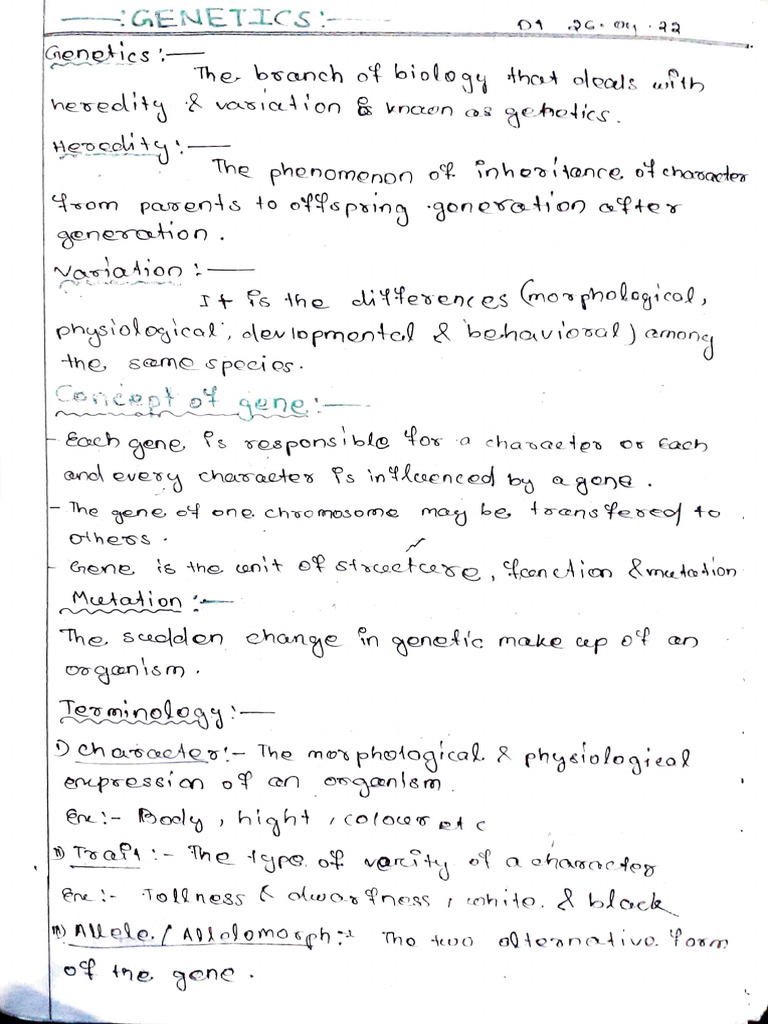 :GENETICS:
Dt 26. 22
Genetics :—
The branch of biology that deals with
heredity & variation is knaon as genetics.
Heredity :—
The phenomenon of inheritance of character
from parents to offspring generation after
generation.
Variation :—
It is the differences (morphological,
physiological, devlopmental & behavioral) among
the same species.
Concept of gene :—
- Each gene is responsible for a character or each
and every character is influenced by a gene.
- The gene of one chromosome may be transfered to
others.
- Gene is the unit of structure, function & mutation
Mutation :—
The sudden change in genetic make up of an
organism.
Terminology :—
i) Character :- The morphological & physiological
expression of an organism.
Ex :- Body, hight, colour etc
ii) Trait :- The type of varity of a character
Ex :- Tallness & dwarfness, white & black
iii) Allele / Allelomorph :- The two alternative form
of the gene.